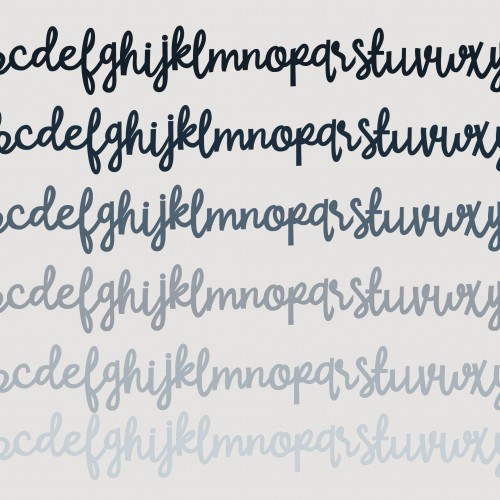 bcdefghijklmnopqrstuvwxy
bcdefghijklmnopqrstuvwxy
bcdefghijklmnopqrstuvwxy
bcdefghijklmnopqrstuvwxy
bcdefghijklmnopqrstuvwxy
bcdefghijklmnopqrstuvwxy